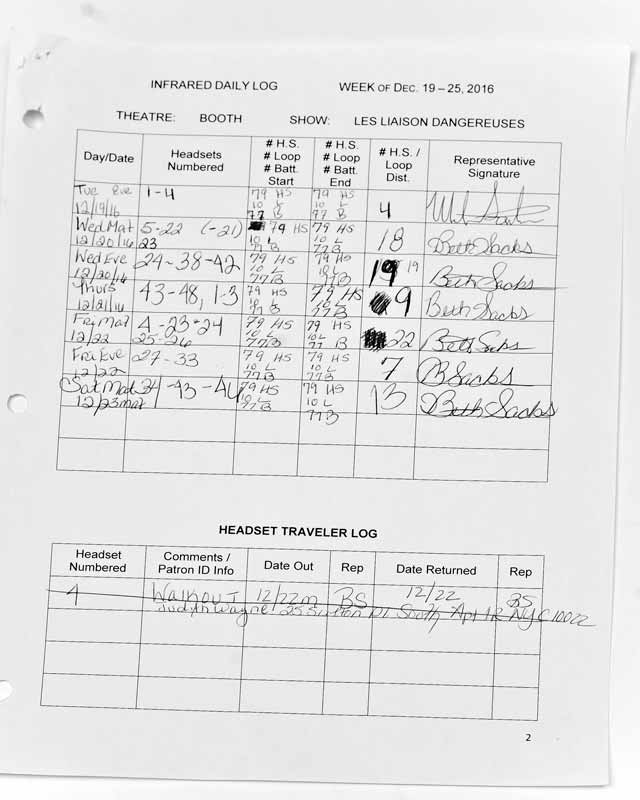 INFRARED DAILY LOG WEEK OF DEC. 19 – 25, 2016
THEATRE: BOOTH SHOW: LES LIAISON DANGEREUSES
Day/Date Headsets Numbered # H.S. # Loop # Batt. Start # H.S. # Loop # Batt. End # H.S. / Loop Dist. Representative Signature
Tue Eve 12/19/16 1-4 79 HS 10 L 77 B 79 HS 10 L 77 B 4
Wed Mat 12/20/16 5-22 (-21) 23 79 HS 10 L 77 B 79 HS 10 L 77 B 18 Beth Sacks
Wed Eve 12/20/16 24-38-42 79 HS 10 L 77 B 79 HS 10 L 77 B 19 19 Beth Sacks
Thurs 12/21/16 43-48, 1-3 79 HS 10 L 77 B 79 HS 10 L 77 B 9 Beth Sacks
Fri Mat 12/22 4-23-24 25-26 79 HS 10 L 77 B 79 HS 10 L 77 B 22 Beth Sacks
Fri Eve 12/22 27-33 79 HS 10 L 77 B 79 HS 10 L 77 B 7 B Sacks
Sat Mat 12/23 mat 34-43-46 79 HS 10 L 77 B 79 HS 10 L 77 B 13 Beth Sacks
HEADSET TRAVELER LOG
Headset Numbered Comments / Patron ID Info Date Out Rep Date Returned Rep
4 Walkout 12/22m BS 12/22 BS
Judith Wagne 25 Sutton Pl South Apt 12 NYC 10022
2